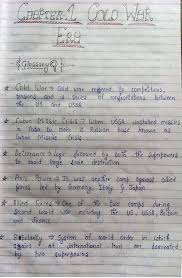 CHAPTER: 1 COLD WAR
ERA
Glossary
Cold War → Cold war referred to competitions,
tensions and a series of confrontations between
the US and USSR
Cuban Missile Crisis → When USSR installed missiles
in Cuba to make it Russian base known as
Cuban Missile Crisis
Deterrence → Logic followed by both the superpowers
to avoid large scale destruction
Axis Powers → It was another camp against allied
forces led by Germany, Italy & Japan
Allied Forces → One of the two camps during
second world war including the US, USSR, Britain
and France
Bipolarity → System of world order in which
affairs at international level are dominated
by two superpowers